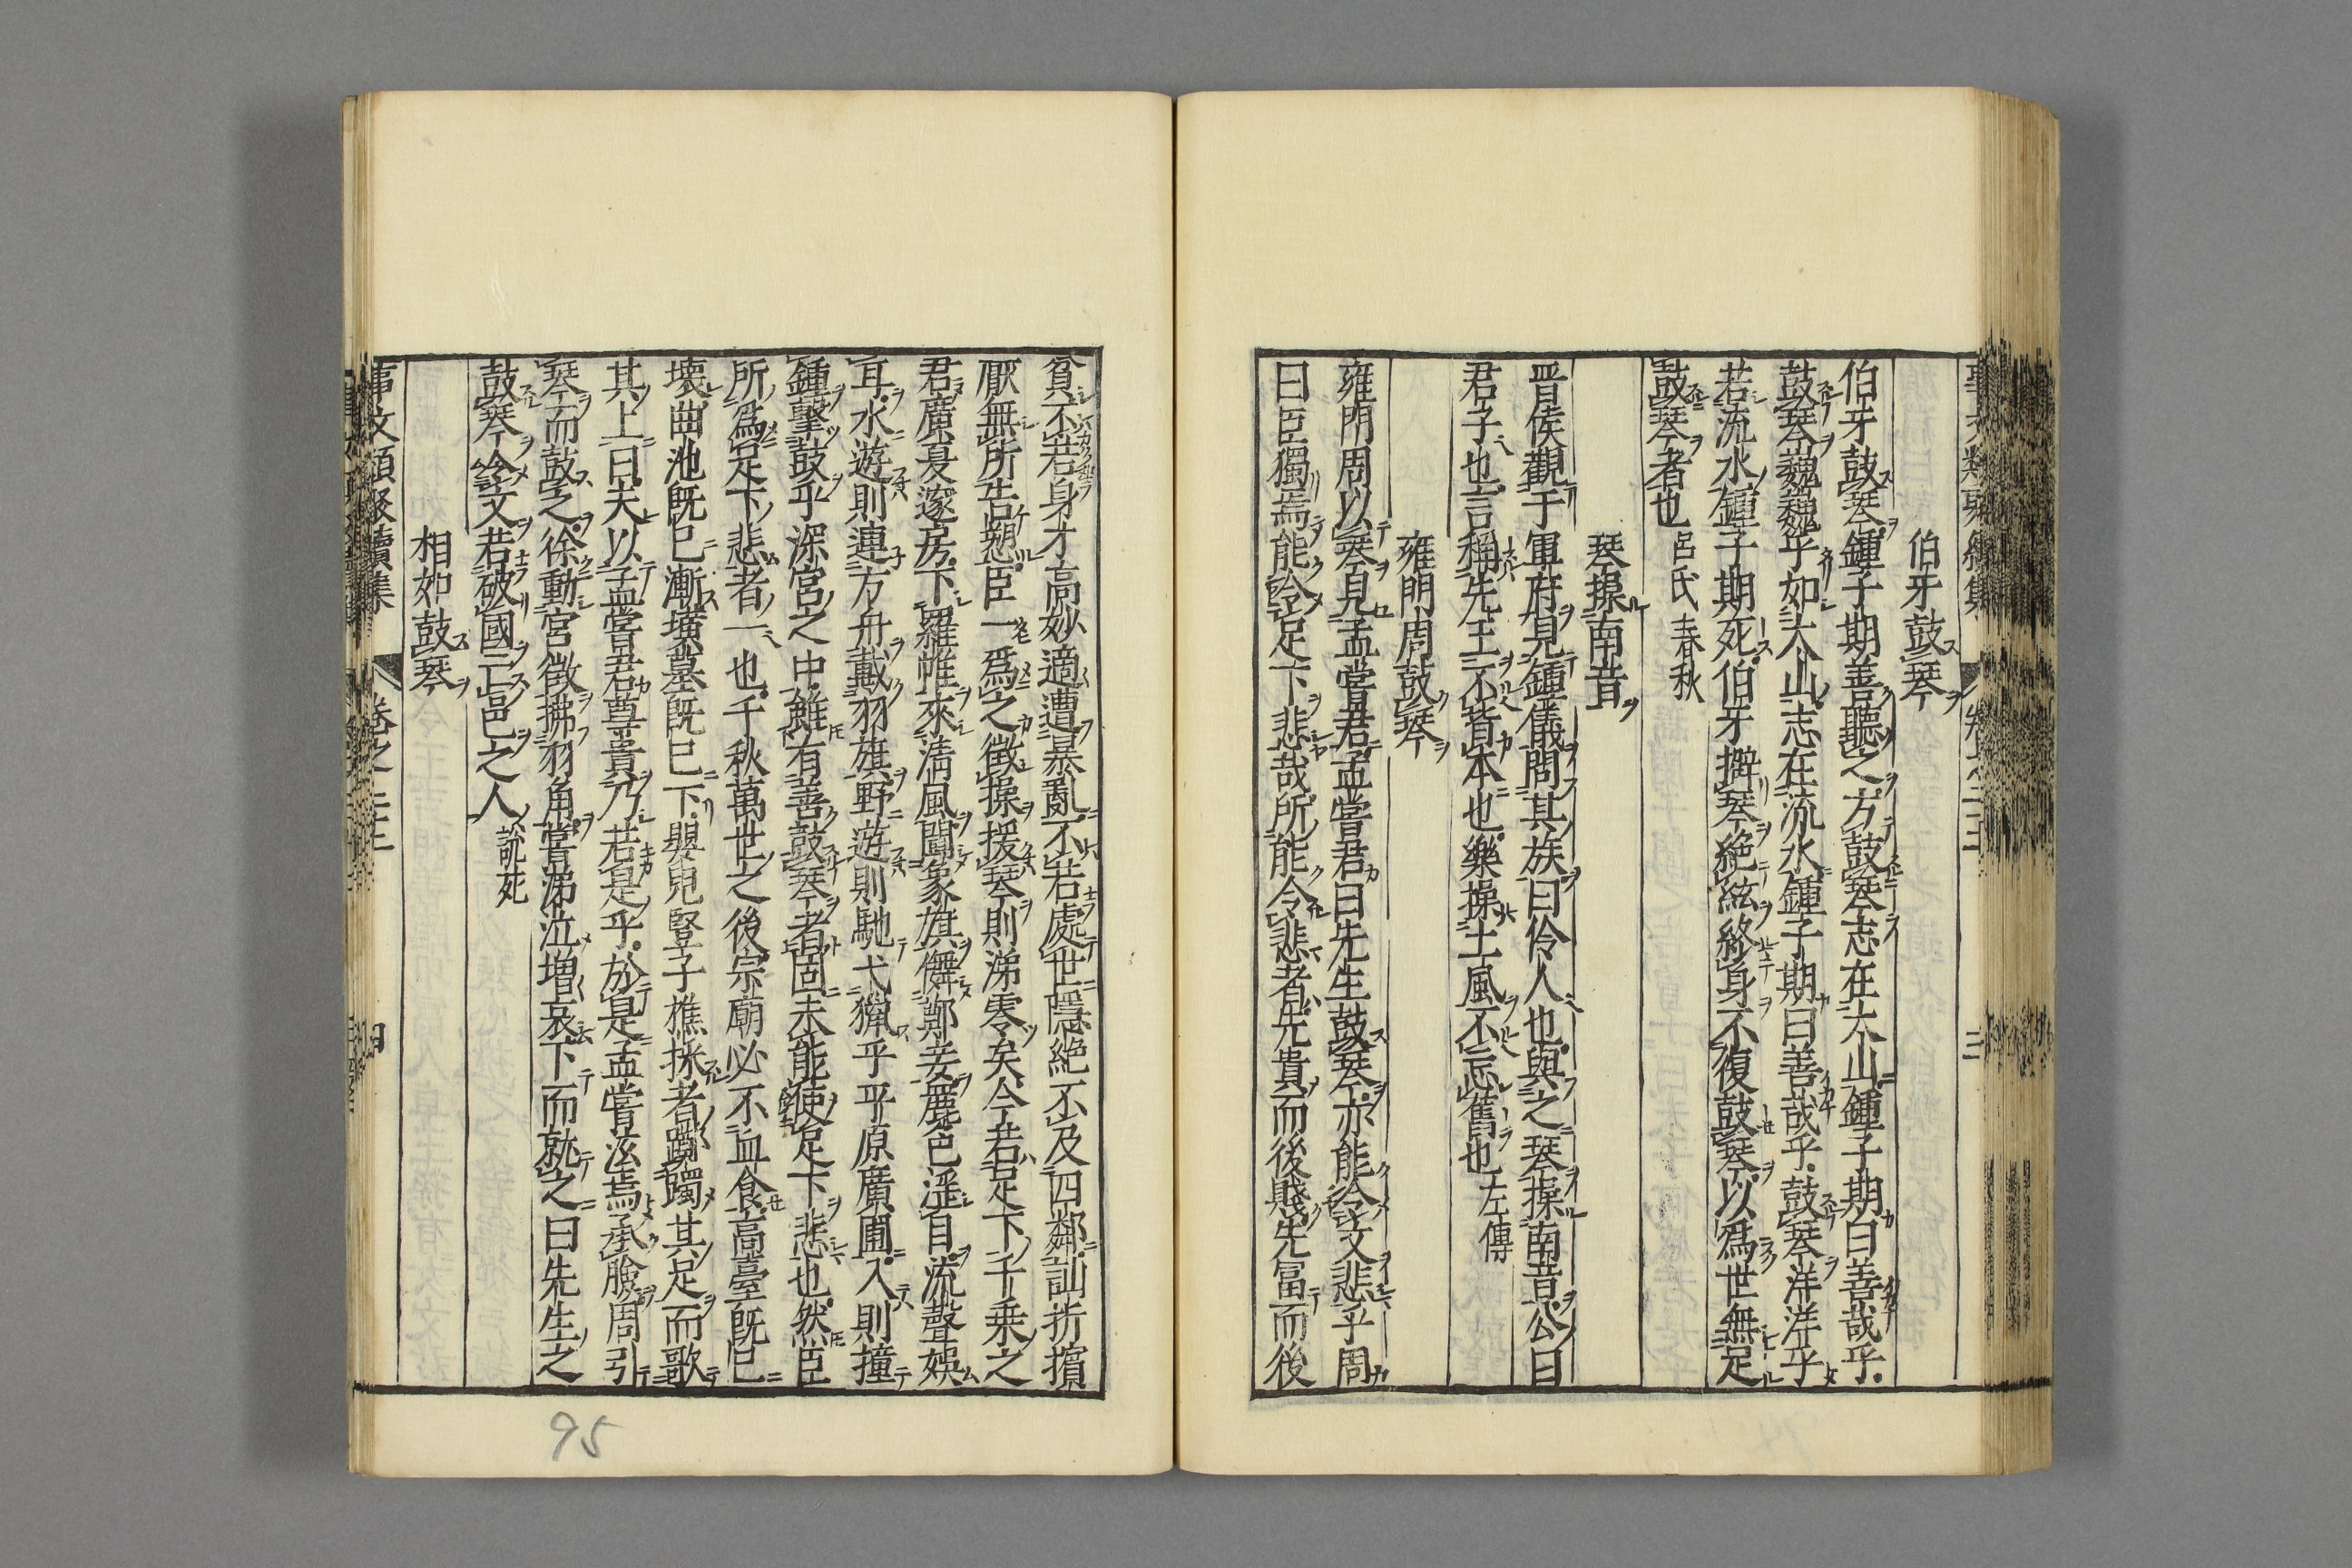 伯牙鼓琴
伯牙鼓琴鍾子期善聽之方鼓琴志在太山鍾子期曰善哉乎
鼓琴巍巍乎如太山志在流水鍾子期曰善哉乎鼓琴洋洋乎
若流水鍾子期死伯牙擗琴絶絃終身不復鼓琴以爲世無足
鼓琴者也 呂氏春秋
琴操南音
晋侯觀于軍府見鍾儀問其族曰伶人也與之琴操南音公曰
君子也言稱先王不背本也樂操土風不忘舊也 左傳
雍門周鼓琴
雍門周以琴見孟嘗君孟嘗君曰先生鼓琴亦能令文悲乎周
曰臣獨焉能令足下悲哉所能令悲者先貴而後賤先冨而後
貧不若身才高妙適遭暴亂不若處世隱絶不及四鄰訕折擯
厭無所告愬臣一爲之徴操援琴則涕零矣今若足下千乗之
君廣夏邃房下羅帷來淸風闘象旗儛鄭妾麗色滛目流聲娯
耳水遊則連方舟戴羽旗野遊則馳弋獵乎平原廣圃入則撞
鍾擊鼓乎深宮之中雖有善鼓琴者固未能使足下悲也然臣
所爲足下悲者一也千秋萬世之後宗廟必不血食高臺既已
壊曲池既已漸墳墓既已下嬰兒竪子樵採者躑躅其足而歌
其上曰夫以孟嘗君尊貴乃若是乎於是孟嘗泫焉承臉周引
琴而鼓之徐動宮徴拂羽角嘗涕泣増哀下而就之曰先生之
鼓琴令文若破國亡邑之人 説苑
相如鼓琴
事文類聚續集 卷之二十二 四
95